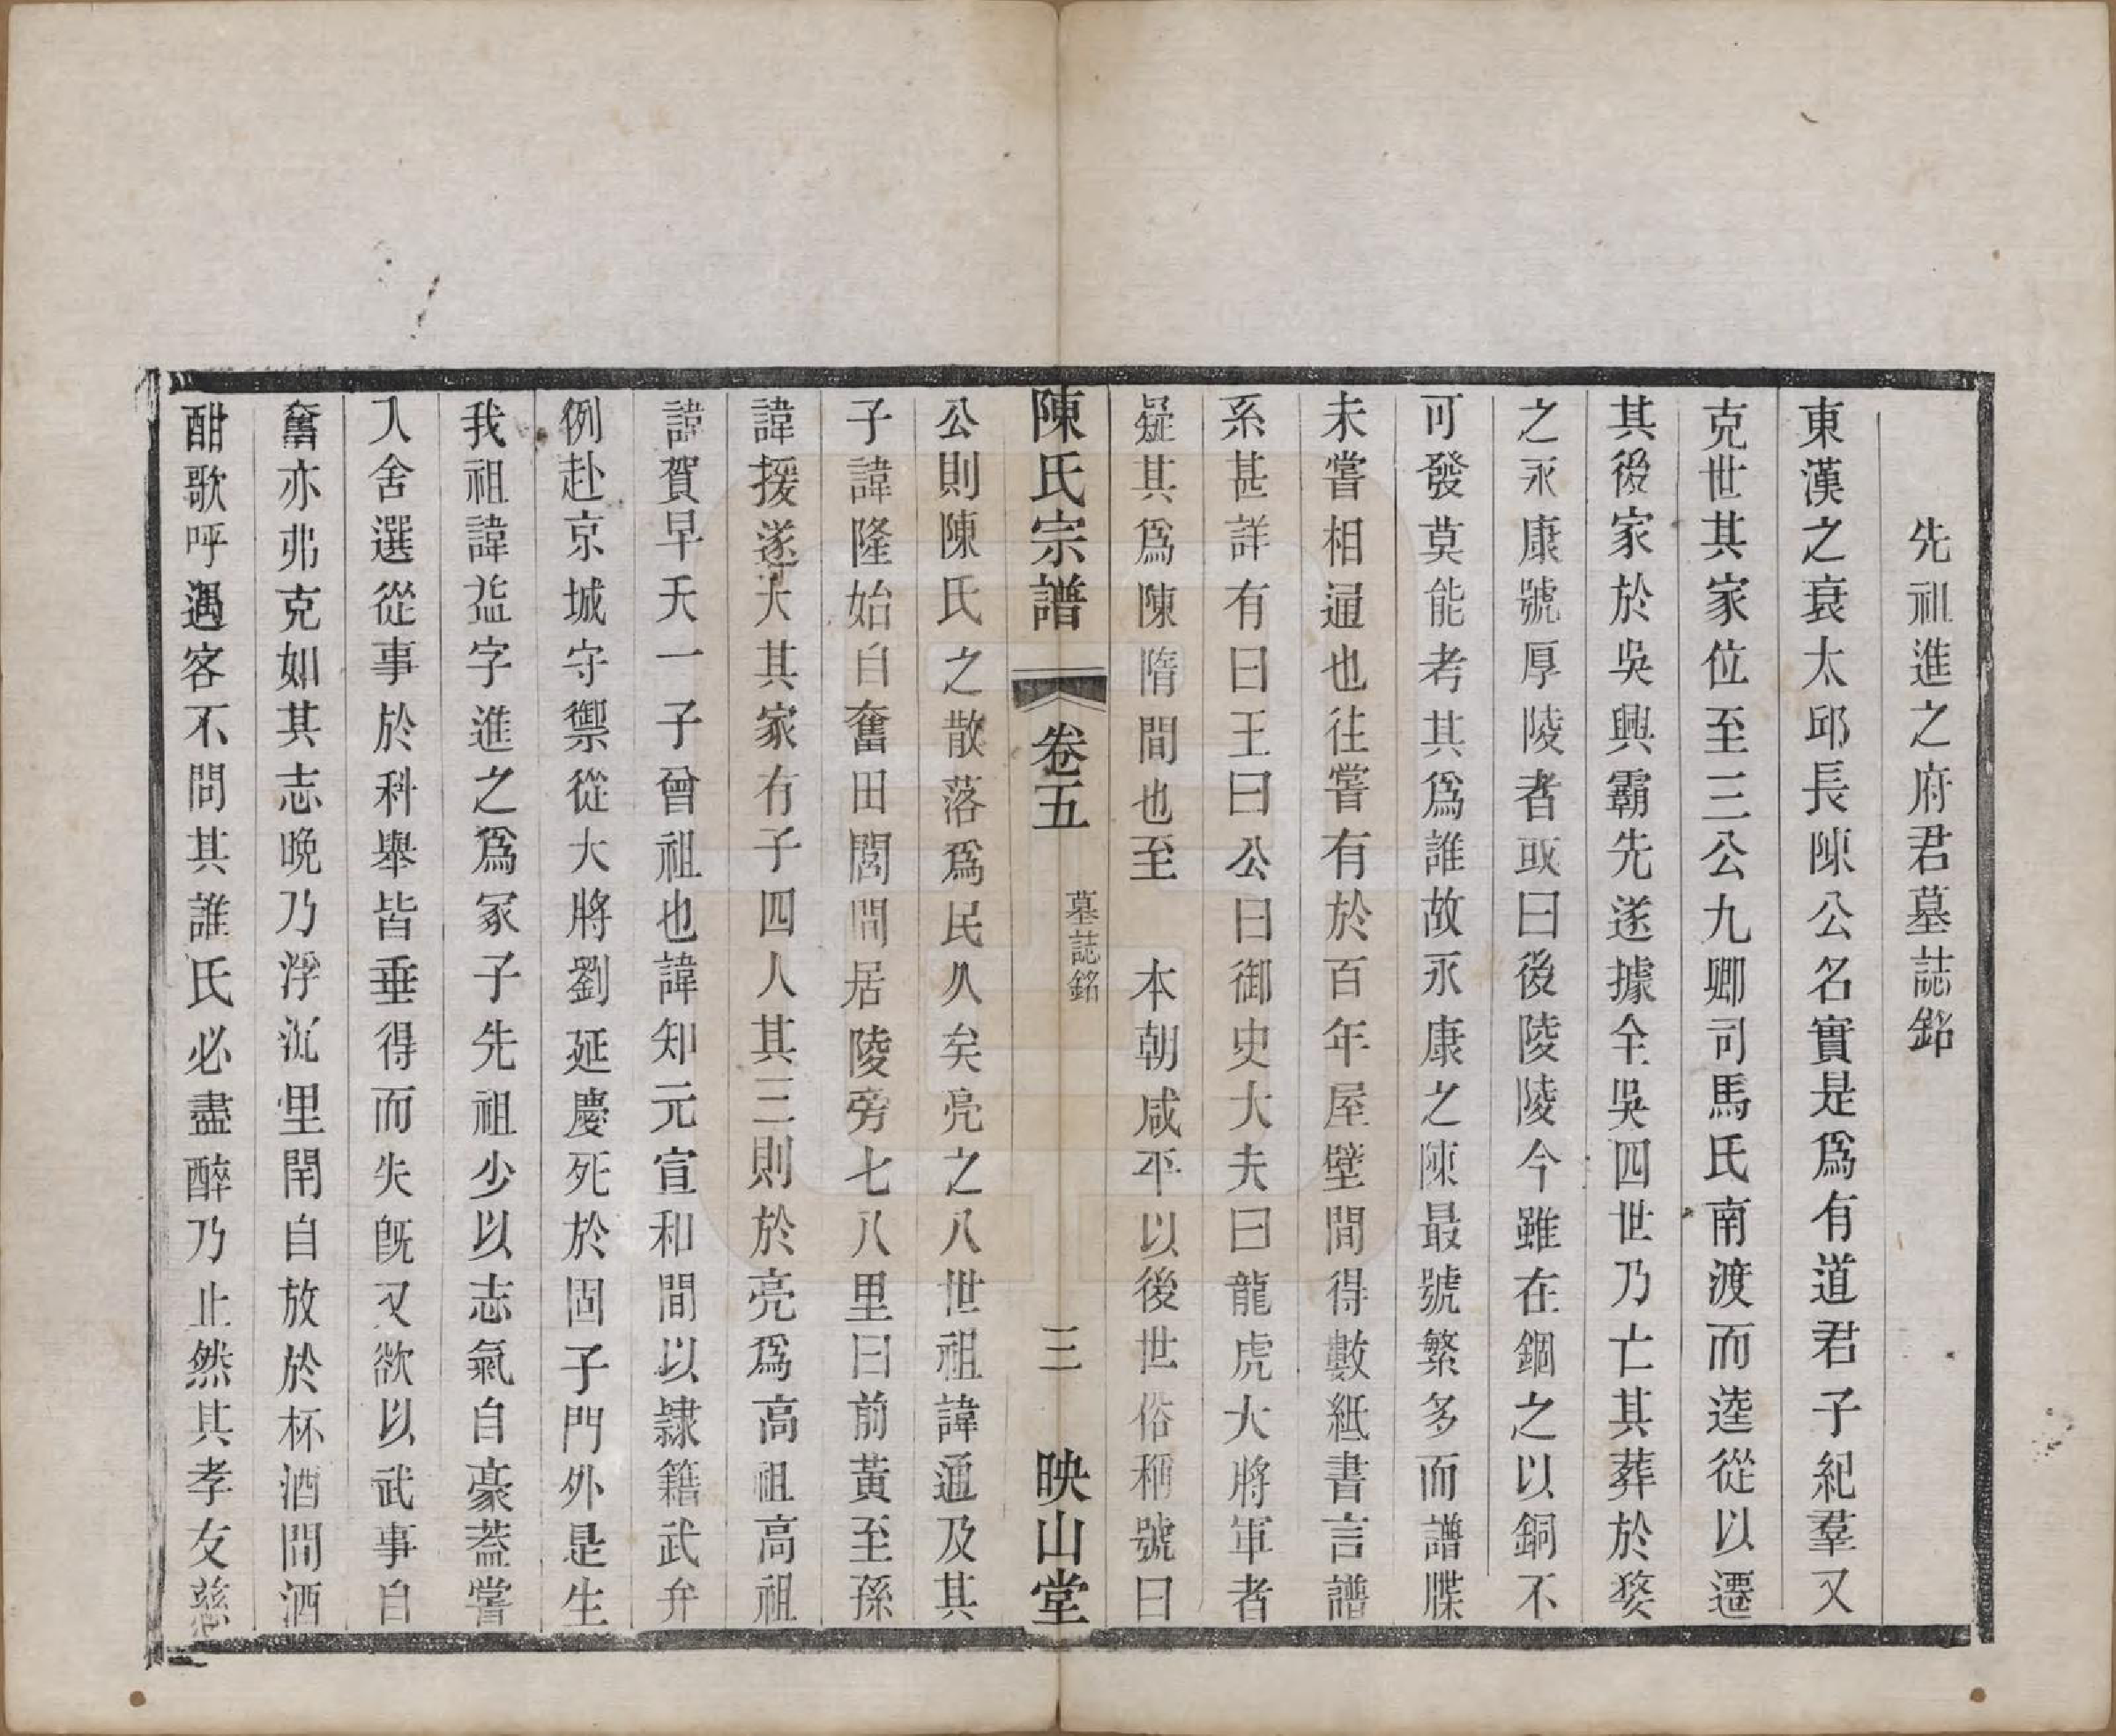 先祖進之府君墓誌銘
東漢之衰太邱長陳公名實是爲有道君子紀羣又
克世其家位至三公九卿司馬氏南渡而逵從以遷
其後家於吳興霸先遂據全吳四世乃亡其葬於婺
之永康號厚陵者或曰後陵陵今雖在錮之以銅不
可發莫能考其爲誰故永康之陳最號繁多而譜牒
未嘗相通也往嘗有於百年屋壁間得數紙書言譜
系甚詳有曰王曰公曰御史大夫曰龍虎大將軍者
疑其爲陳隋間也至 本朝咸平以後世俗稱號曰
陳氏宗譜 卷五 墓誌銘 三 映山堂
公則陳氏之散落爲民久矣亮之八世祖諱通及其
子諱隆始自奮田閭間居陵旁七八里曰前黃至孫
諱援遂大其家有子四人其三則於亮爲高祖高祖
諱賀早夭一子曾祖也諱知元宣和間以隷籍武弁
例赴京城守禦從大將劉延慶死於固子門外是生
我祖諱益字進之爲冢子先祖少以志氣自豪蓋嘗
入舍選從事於科舉皆垂得而失旣又欲以武事自
奮亦弗克如其志晩乃浮沉里閈自放於杯酒間酒
酣歌呼遇客不問其誰氏必盡醉乃止然其孝友慈